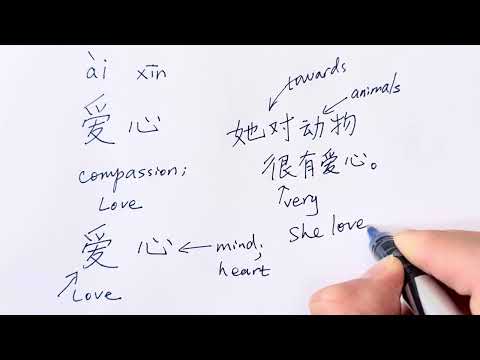 ài xīn
爱 心
compassion;
Love
爱 心 ← mind;
heart
Love
towards
animals
她对动物
很有爱心。
very
She love